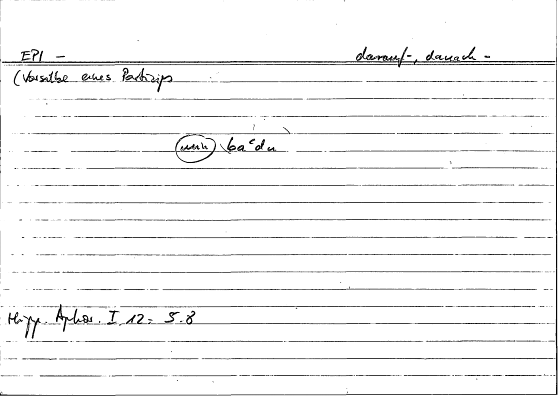 EPI - darauf-, danach -
(Vorsilbe eines Partizips
min baʿdu
Hipp. Aphor. I 12 = 5.8